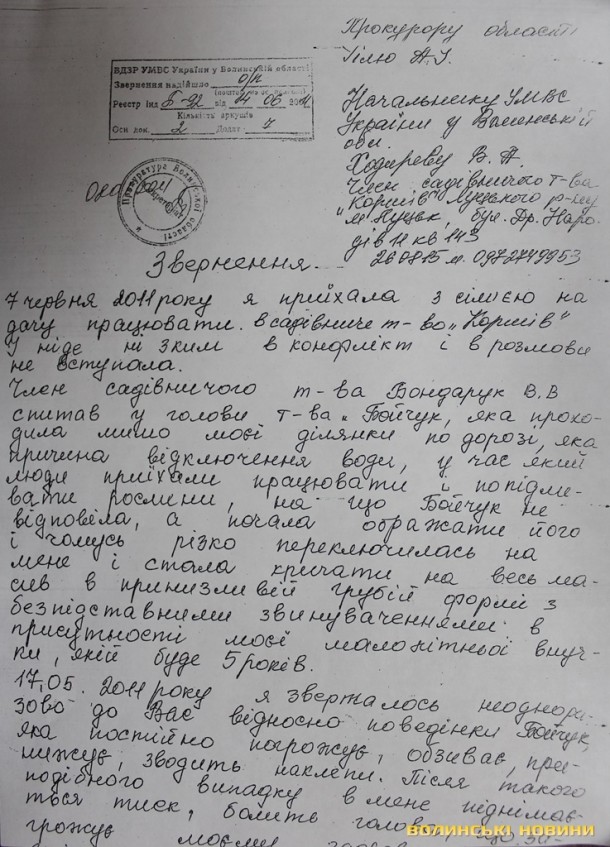 Прокурору області
Гілю А.І.
ВДЗР УМВС України у Волинській області
Звернення надійшло о/п
Реєстр інд Б-92 від 14 06 2011
Кількість аркушів
Осн док. 2 Додат. 7
Начальнику УМВС
України у Волинській
обл.
Ходиреву В. А.
Член садівничого т-ва
"Коршів" Луцького р-ну
м. Луцьк, бул. Др. Наро-
дів 11 кв 143
260815 м. 0972749953
Прокуратура Волинської області
Звернення
7 червня 2011 року я приїхала з сім'єю на
дачу працювати. в садівниче т-во „Коршів"
У ніде ні з ким в конфлікт і в розмови
не вступала.
Член садівничого т-ва Бондарук В.В
спитав у голови т-ва „Бойчук, яка прохо-
дила мимо моєї ділянки по дорозі, яка
причина відключення води, у час який
люди приїхали працювати і попідли-
вати рослини, на що Бойчук не
відповіла, а почала ображати його
і чомусь різко переключилась на
мене і стала кричати на весь ма-
сив в принизливій грубій формі з
безпідставними звинуваченнями в
присутності моєї малолітньої внуч-
ки, якій буде 5 років.
17.05. 2011 року я зверталось неоднора-
зово до Вас відносно поведінки Бойчук,
яка постійно погрожує, обзиває, при-
нижує, зводить наклепи. Після такого
подібного випадку в мене піднімає-
ться тиск, болить голова, що за-
грожує моєму
ВОЛИНСЬКІ НОВИНИ